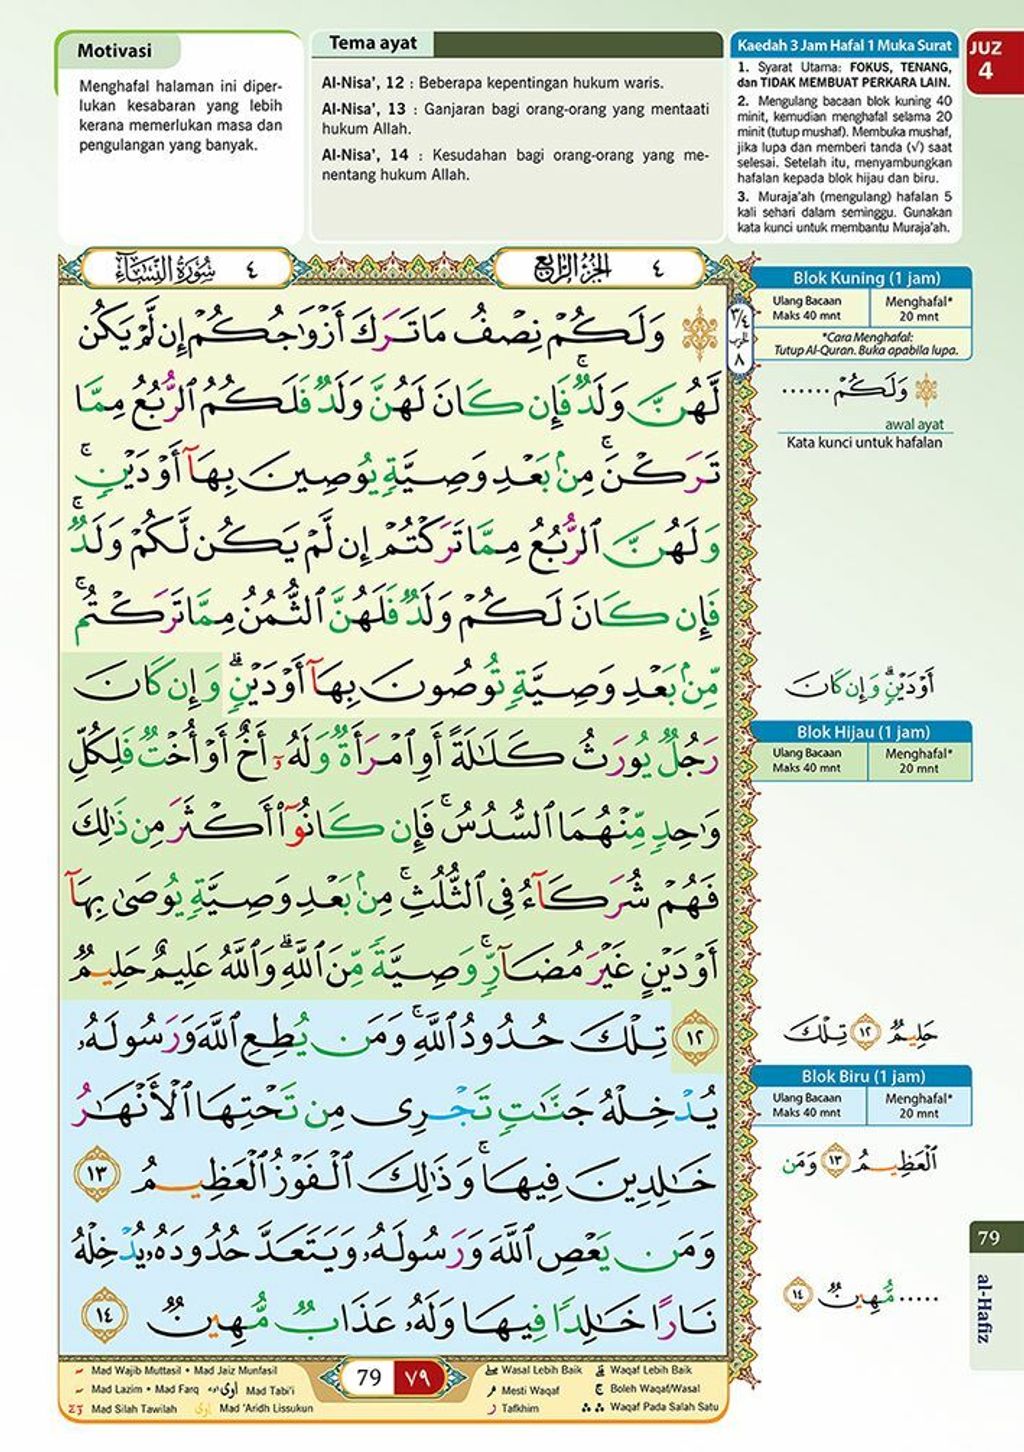 Motivasi
Menghafal halaman ini diper-
lukan kesabaran yang lebih
kerana memerlukan masa dan
pengulangan yang banyak.
Tema ayat
Al-Nisa', 12 : Beberapa kepentingan hukum waris.
Al-Nisa', 13 : Ganjaran bagi orang-orang yang mentaati
hukum Allah.
Al-Nisa', 14 : Kesudahan bagi orang-orang yang me-
nentang hukum Allah.
Kaedah 3 Jam Hafal 1 Muka Surat
1. Syarat Utama: FOKUS, TENANG,
dan TIDAK MEMBUAT PERKARA LAIN.
2. Mengulang bacaan blok kuning 40
minit, kemudian menghafal selama 20
minit (tutup mushaf). Membuka mushaf,
jika lupa dan memberi tanda (√) saat
selesai. Setelah itu, menyambungkan
hafalan kepada blok hijau dan biru.
3. Muraja'ah (mengulang) hafalan 5
kali sehari dalam seminggu. Gunakan
kata kunci untuk membantu Muraja'ah.
JUZ
4
٤ الجزء الرابع
٤ سورة النساء
٣/٤
الحزب
٨
۞ وَلَكُمْ نِصْفُ مَا تَرَكَ أَزْوَٰجُكُمْ إِن لَّمْ يَكُن
لَّهُنَّ وَلَدٌ ۚ فَإِن كَانَ لَهُنَّ وَلَدٌ فَلَكُمُ ٱلرُّبُعُ مِمَّا
تَرَكْنَ ۚ مِنۢ بَعْدِ وَصِيَّةٍ يُوصِينَ بِهَآ أَوْ دَيْنٍ ۚ
وَلَهُنَّ ٱلرُّبُعُ مِمَّا تَرَكْتُمْ إِن لَّمْ يَكُن لَّكُمْ وَلَدٌ ۚ
فَإِن كَانَ لَكُمْ وَلَدٌ فَلَهُنَّ ٱلثُّمُنُ مِمَّا تَرَكْتُم ۚ
مِّنۢ بَعْدِ وَصِيَّةٍ تُوصُونَ بِهَآ أَوْ دَيْنٍ ۗ وَإِن كَانَ
رَجُلٌ يُورَثُ كَلَـٰلَةً أَوِ ٱمْرَأَةٌ وَلَهُۥٓ أَخٌ أَوْ أُخْتٌ فَلِكُلِّ
وَٰحِدٍ مِّنْهُمَا ٱلسُّدُسُ ۚ فَإِن كَانُوٓا۟ أَكْثَرَ مِن ذَٰلِكَ
فَهُمْ شُرَكَآءُ فِى ٱلثُّلُثِ ۚ مِنۢ بَعْدِ وَصِيَّةٍ يُوصَىٰ بِهَآ
أَوْ دَيْنٍ غَيْرَ مُضَآرٍّ ۚ وَصِيَّةً مِّنَ ٱللَّهِ ۗ وَٱللَّهُ عَلِيمٌ حَلِيمٌ
١٢ تِلْكَ حُدُودُ ٱللَّهِ ۚ وَمَن يُطِعِ ٱللَّهَ وَرَسُولَهُۥ
يُدْخِلْهُ جَنَّـٰتٍ تَجْرِى مِن تَحْتِهَا ٱلْأَنْهَـٰرُ
خَـٰلِدِينَ فِيهَا ۚ وَذَٰلِكَ ٱلْفَوْزُ ٱلْعَظِيمُ ١٣
وَمَن يَعْصِ ٱللَّهَ وَرَسُولَهُۥ وَيَتَعَدَّ حُدُودَهُۥ يُدْخِلْهُ
نَارًا خَـٰلِدًا فِيهَا وَلَهُۥ عَذَابٌ مُّهِينٌ ١٤
Blok Kuning (1 jam)
Ulang Bacaan Menghafal*
Maks 40 mnt 20 mnt
*Cara Menghafal:
Tutup Al-Quran. Buka apabila lupa.
۞ وَلَكُمْ ......
awal ayat
Kata kunci untuk hafalan
أَوْ دَيْنٍ ۗ وَإِن كَانَ
Blok Hijau (1 jam)
Ulang Bacaan Menghafal*
Maks 40 mnt 20 mnt
حَلِيمٌ ١٢ تِلْكَ
Blok Biru (1 jam)
Ulang Bacaan Menghafal*
Maks 40 mnt 20 mnt
ٱلْعَظِيمُ ١٣ وَمَن
..... مُّهِينٌ ١٤
79
al-Hafiz
Mad Wajib Muttasil • Mad Jaiz Munfasil
Mad Lazim • Mad Farq Mad Tabi'i
Mad Silah Tawilah Mad 'Aridh Lissukun
79 ٧٩
Wasal Lebih Baik Waqaf Lebih Baik
Mesti Waqaf Boleh Waqaf/Wasal
Tafkhim Waqaf Pada Salah Satu